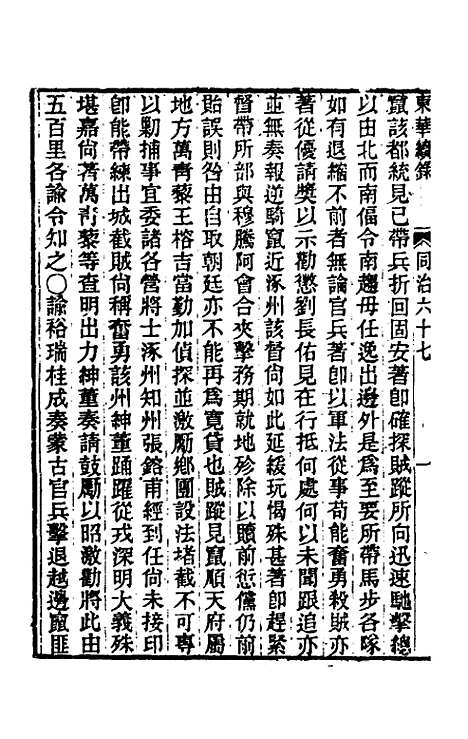 東華續錄　同治六十七　一
竄該都統見已帶兵折回固安著卽確探賊蹤所向迅速馳擊總
以由北而南偪令南趨毋任逸出邊外是爲至要所帶馬步各隊
如有退縮不前者無論官兵著卽以軍法從事苟能奮勇殺賊亦
著從優請奬以示勸懲劉長佑見在行抵何處何以未聞跟追亦
並無奏報逆騎竄近涿州該督尙如此延緩玩愒殊甚著卽趕緊
督帶所部與穆騰阿會合夾擊務期就地殄除以贖前愆儻仍前
貽誤則咎由自取朝廷亦不能再爲寬貸也賊蹤見竄順天府屬
地方萬靑藜王榕吉當勤加偵探並激厲鄉團設法堵截不可專
以勦捕事宜委諸各營將士涿州知州張鎔甫經到任尙未接印
卽能帶練出城截賊尙稱奮勇該州紳董踴躍從戎深明大義殊
堪嘉尙著萬靑藜等查明出力紳董奏請鼓勵以昭激勸將此由
五百里各諭令知之〇諭裕瑞桂成奏蒙古官兵擊退越邊竄匪